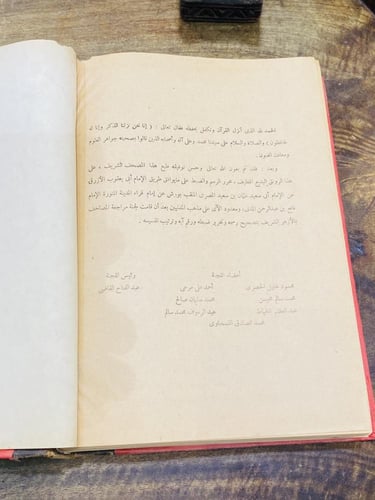 الحمد لله الذى أنزل القرآن وتكفل بحفظه فقال تعالى : ( إنا نحن نزلنا الذكر وإنا له
لحافظون ) والصلاة والسلام على سيدنا محمد وعلى آله وأصحابه الذين نالوا بصحبته جواهر العلوم
ومعادن الفنون .
وبعد : فقد تم بعون الله تعالى وحسن توفيقه طبع هذا المصحف الشريف ، على
هذا الرونق البديع اللطيف ، محرر الرسم والضبط على مايوافق طريق الإمام أبى يعقوب الأزرق
عن الإمام أبى سعيد عثمان بن سعيد المصرى الملقب بورش عن إمام قراء المدينة المنورة الإمام
نافع بن عبد الرحمن المدنى ، ومعدود الآى على مذهب المدنيين بعد أن قامت لجنة مراجعة المصاحف
بالأزهر الشريف بتصحيح رسمه وتحرير ضبطه ورقم آيه وترتيب تقسيمه .
أعضاء اللجنة ورئيس اللجنة
محمود خليل الحصرى أحمد على مرعى عبد الفتاح القاضى
محمد سالم محيسن محمد سليمان صالح
عبد العظيم الخياط عبد الرءوف محمد سالم
محمد الصادق قمحاوى